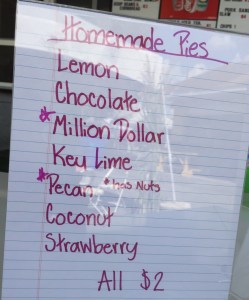 Homemade Pies
Lemon
Chocolate
*Million Dollar
Key Lime
*Pecan *has Nuts
Coconut
Strawberry
All $2